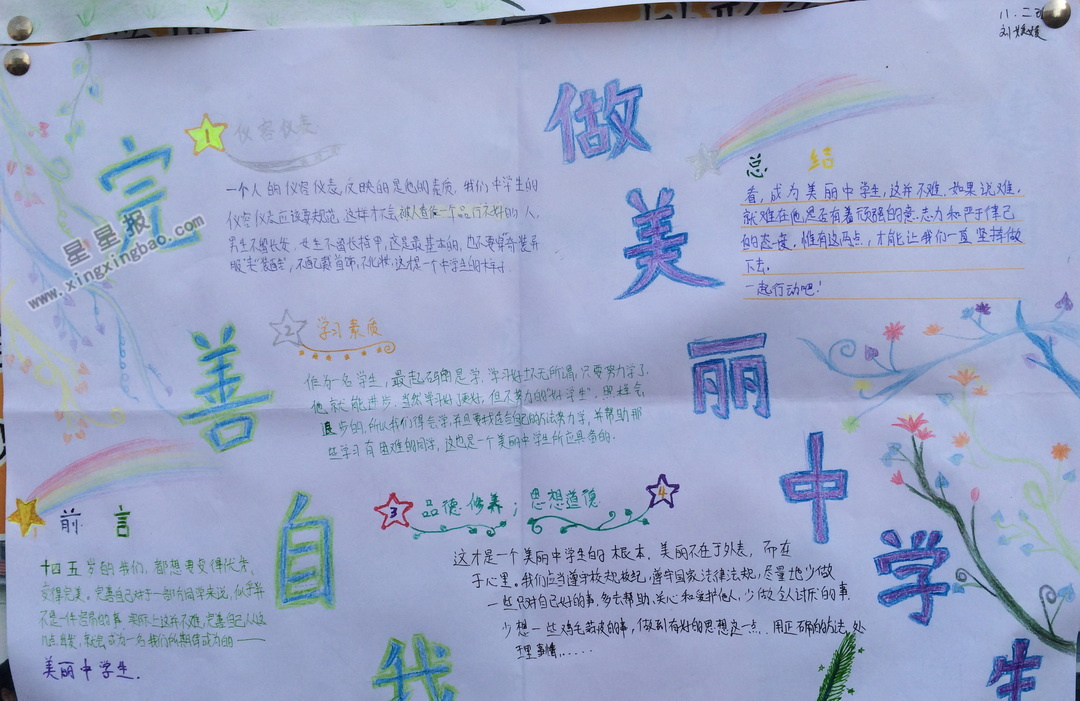 八.二班
刘媛媛
完善自我
做美丽中学生
星星报
www.xingxingbao.com
1 仪容仪表
一个人的仪容仪表,反映的是他的素质。我们中学生的
仪容仪表应该要规范,这样才不会被人看做一个品行不好的人,
男生不留长发,女生不留长指甲,这是最基本的,也不要穿奇装异
服,不佩戴首饰,不化妆,这才是一个中学生的样子.
2 学习素质
作为一名学生,最起码的是学,学习好坏无所谓,只要努力学了,
他就能进步,当然学习好了更好,但不努力的"好学生",照样会
退步的,所以我们得会学,并且要找适合自己的方法努力学,并帮助那
些学习有困难的同学,这也是一个美丽中学生所应具备的.
前言
十四五岁的我们,都想要变得优秀,
变得完美。完善自己对于一部分同学来说,似乎并
不是一件容易的事,实际上这并不难,完善自己从这
几点出发,就会成为一名我们所期待成为的——
美丽中学生.
3 品德修养; 思想道德 4
这才是一个美丽中学生的根本,美丽不在于外表,而在
于心里。我们应当遵守校规校纪,遵守国家法律法规,尽量地少做
一些只对自己好的事,多去帮助、关心和爱护他人,少做令人讨厌的事.
少想一些鸡毛蒜皮的事,做到有好的思想这一点,用正确的方法处
理事情......
总结
看,成为美丽中学生,这并不难,如果说难,
就难在他是否有着顽强的意志力和严于律己
的态度,惟有这两点,才能让我们一直坚持做
下去.
一起行动吧!